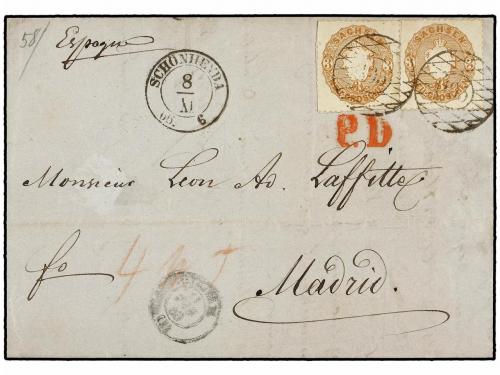 58/
Espagne
SCHÖNHEYDA
8
XI
65. 6
SACHSEN
SACHSEN
P.D
Monsieur Leon Ad. Laffitte
fo
Madrid.